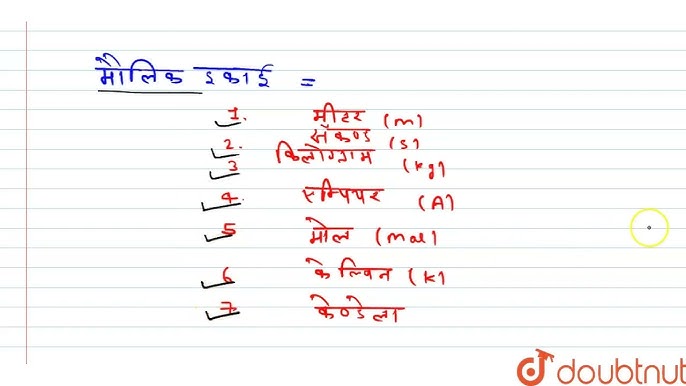 मौलिक इकाई =
1. मीटर (m)
2. सेकण्ड (s)
3 किलोग्राम (kg)
4. एम्पियर (A)
5 मोल (mol)
6 केल्विन (k)
7 केण्डेला
doubtnut